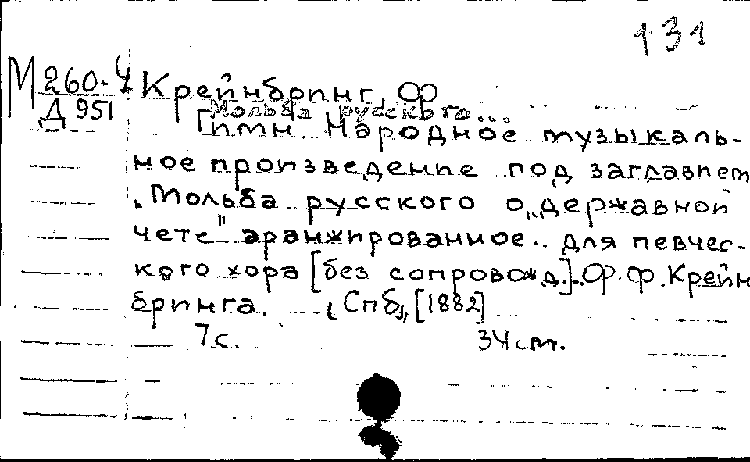 131
М260-4 Крейнбринг, Ф
Д 951 Мольба русского...
Гимн. Народное музыкаль-
ное произведение под заглавием
„Мольба русского о „державной
чете" аранжированное.. для певчес-
кого хора [без сопровожд.]. Ф.Ф. Крейн
бринга. Спб, [1882]
7 с. 34 см.